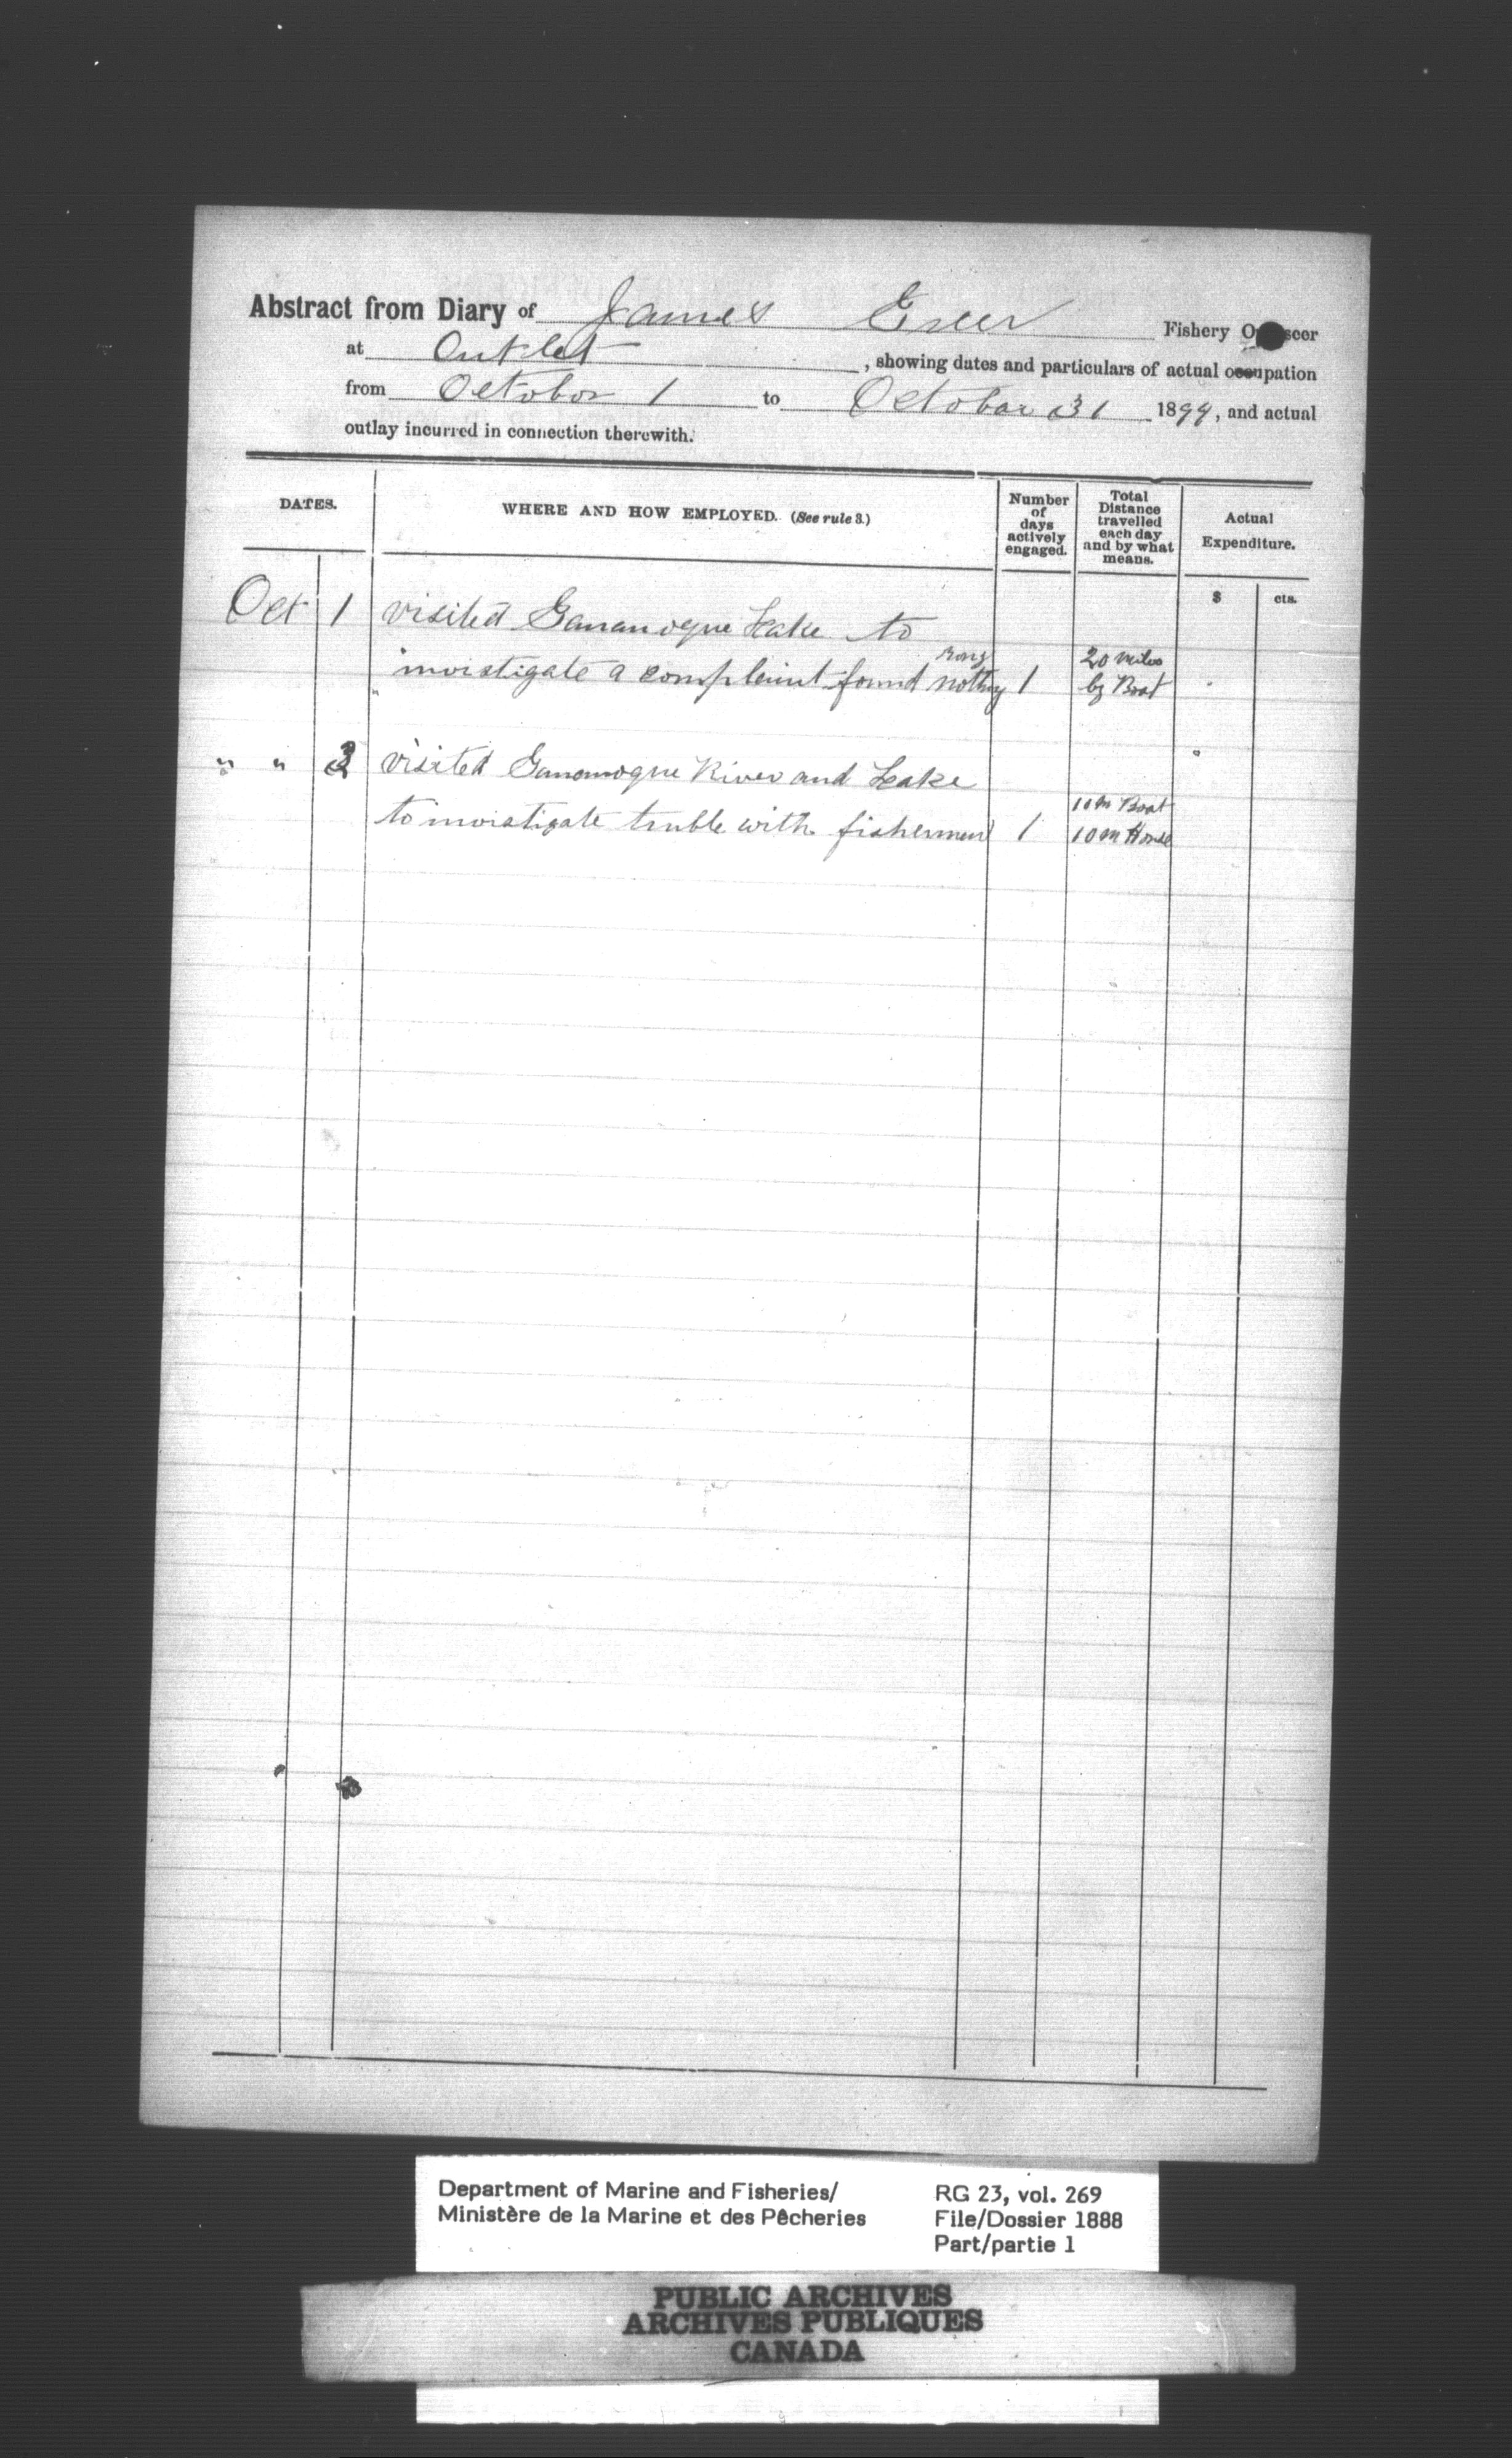 Abstract from Diary of James Greer Fishery O seer
at Outlet , showing dates and particulars of actual occupation
from October 1 to October 31 1899, and actual
outlay incurred in connection therewith.
DATES.
WHERE AND HOW EMPLOYED. (See rule 3.)
Number of days actively engaged.
Total Distance travelled each day and by what means.
Actual Expenditure.
$ cts.
Oct 1 visited Gananoque Lake to
rong 20 miles
invistigate a complaint found nothing 1 by Boat
" " 3 visited Gananoque River and Lake
10 m Boat
to invistigate truble with fishermen 1 10 m Horse
Department of Marine and Fisheries/
Ministère de la Marine et des Pêcheries
RG 23, vol. 269
File/Dossier 1888
Part/partie 1
PUBLIC ARCHIVES
ARCHIVES PUBLIQUES
CANADA